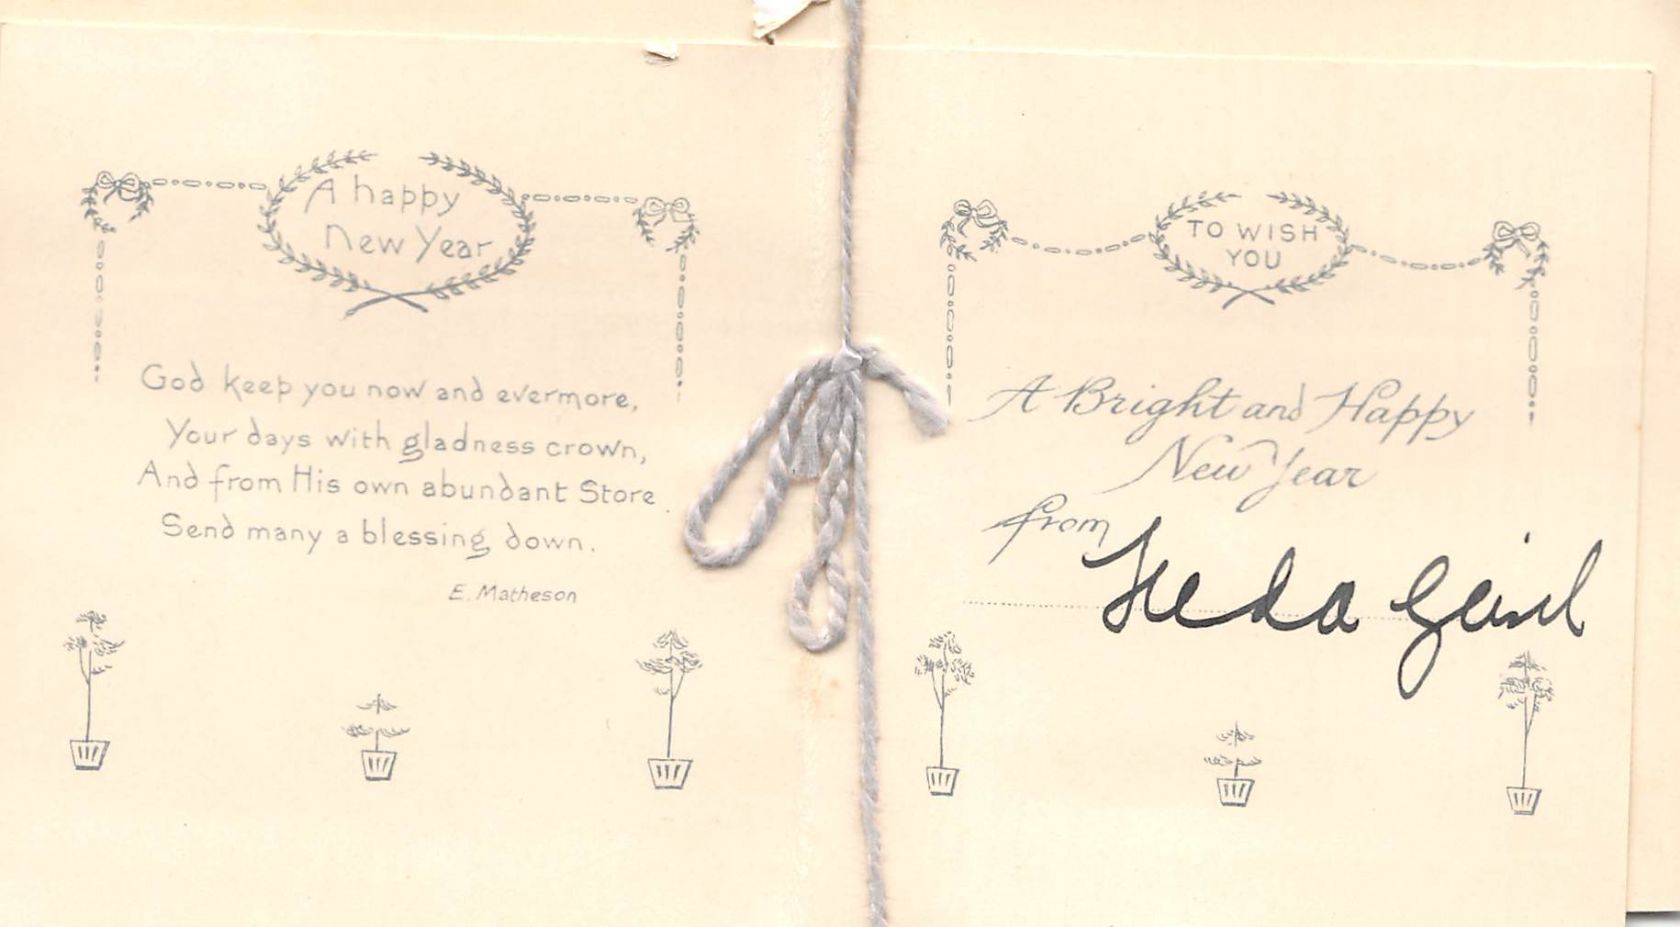 A happy
New Year
God keep you now and evermore,
Your days with gladness crown,
And from His own abundant Store
Send many a blessing down.
E. Matheson
TO WISH
YOU
A Bright and Happy
New Year
from